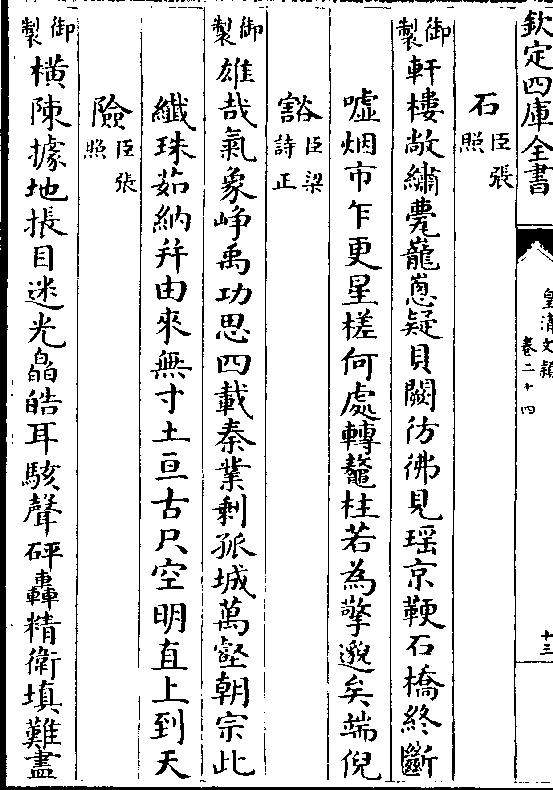 欽定四庫全書
皇清文穎
卷二十四
十三
石臣張照
御製軒樓敞繡甍巃嵸疑貝闕彷彿見瑶京鞭石橋終斷
噓烟市乍更星槎何處轉鼇柱若為擎邈矣端倪
豁臣梁詩正
御製雄哉氣象崢禹功思四載秦業剩孤城萬壑朝宗此
纖珠茹納并由來無寸土亘古尺空明直上到天
險臣張照
御製橫陳據地掁目迷光皛皓耳駭聲砰轟精衛填難盡